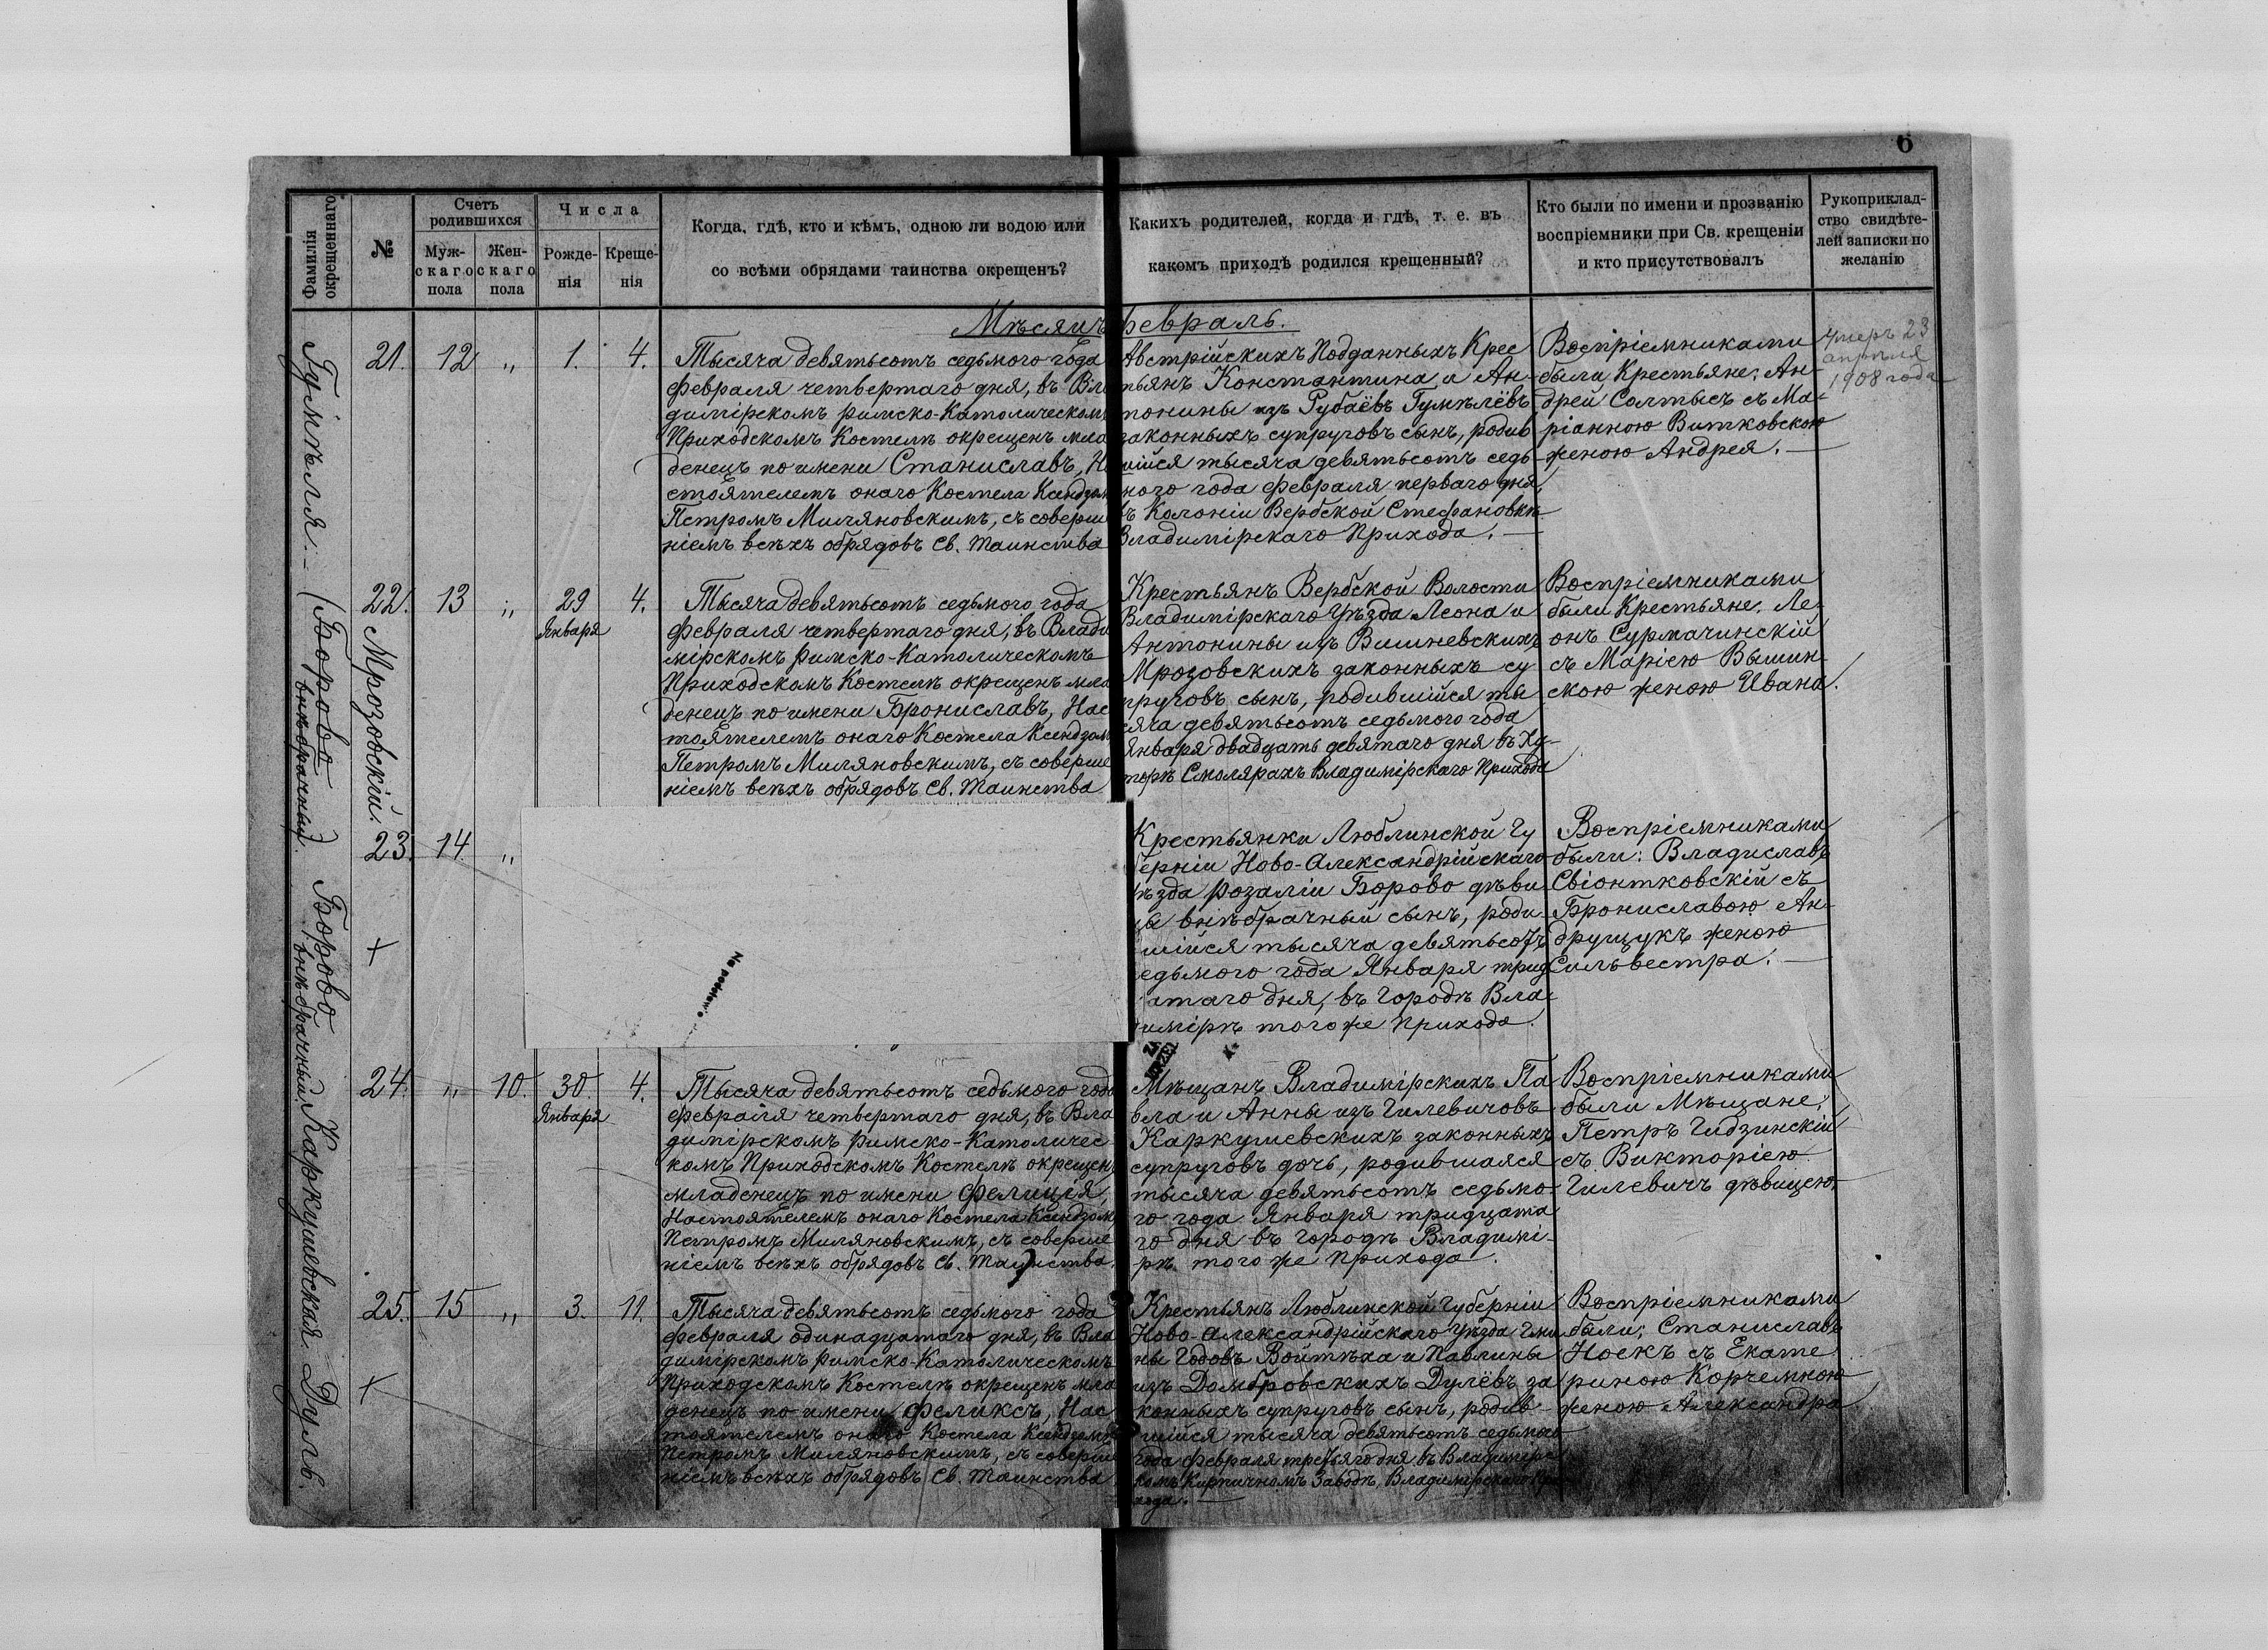 6
Фамилія окрещеннаго
№
Счетъ родившихся
Муж-скаго пола
Жен-скаго пола
Числа
Рожде-нія
Креще-нія
Когда, гдѣ, кто и кѣмъ, одною ли водою или
со всѣми обрядами таинства окрещенъ?
Какихъ родителей, когда и гдѣ, т. е. въ
какомъ приходѣ родился крещенный?
Кто были по имени и прозванію
воспріемники при Св. крещеніи
и кто присутствовалъ
Рукоприклад-
ство свидѣте-
лей записки по
желанію
Мѣсяцъ февраль.
21. 12 „ 1. 4.
Тысяча девятьсотъ седьмого года
февраля четвертаго дня, въ Вла
димірскомъ римско-Католическомъ
Приходскомъ Костелѣ окрещенъ мла
денецъ по имени Станиславъ, На
стоятелемъ онаго Костела Ксендзом
Петромъ Миляновскимъ, съ соверше
ніемъ всѣхъ обрядовъ Св. таинства
Австрійскихъ Подданныхъ Крес
тьянъ Константина и Ан-
тонины изъ Рубаёвъ Гумѣлёвъ
законныхъ супруговъ сынъ, родив
шійся тысяча девятьсотъ седь
мого года февраля перваго дня,
въ Колоніи Вербской Стефановкѣ
Владимірскаго Прихода.
Воспріемниками
были Крестьяне: Ан-
дрей Солтысъ съ Ма-
ріанною Витковскою
женою Андрея.
Умеръ 23
апрѣля
1908 года
22. 13 „ 29 Января 4.
Мрозовскій.
Тысяча девятьсотъ седьмого года
февраля четвертаго дня, въ Влади
мірскомъ римско-Католическомъ
Приходскомъ Костелѣ окрещенъ мла
денецъ по имени Брониславъ, Нас
тоятелемъ онаго Костела Ксендзом
Петромъ Миляновскимъ, съ соверше
ніемъ всѣхъ обрядовъ Св. таинства
Крестьянъ Вербской Волости
Владимірскаго Уѣзда Леона и
Антонины изъ Вишневскихъ
Мрозовскихъ законныхъ су
пруговъ сынъ, родившійся ты
сяча девятьсотъ седьмого года
Января двадцать девятаго дня въ Ху-
торѣ Смолярахъ Владимірскаго Прихода
Воспріемниками
были Крестьяне: Ле-
онъ Сурмачинскій
съ Маріею Вышин-
скою женою Ивана.
(Борово
внѣбрачный)
23. 14. „
Na podstaw.
Крестьянки Люблинской Гу
берніи Ново-Александрійскаго
уѣзда Розаліи Борово дѣви
цы внѣбрачный сынъ, роди
вшійся тысяча девятьсотъ
седьмого года Января трид
цатаго дня, въ Городѣ Вла-
димірѣ того же Прихода.
Воспріемниками
были: Владиславъ
Свіонтковскій съ
Брониславою Ан-
друщукъ женою
Сильвестра.
Борово
внѣбрачный.
24. „ 10. 30. Января 4.
Каркушевская.
Тысяча девятьсотъ седьмого года
февраля четвертаго дня, въ Вла
димірскомъ римско-Католичес-
комъ Приходскомъ Костелѣ окрещен
младенецъ по имени Фелиція,
Настоятелемъ онаго Костела Ксендзом
Петромъ Миляновскимъ, съ соверше
ніемъ всѣхъ обрядовъ Св. Таинства.
Мѣщанъ Владимірскихъ Па
вла и Анны изъ Гилевичовъ
Каркушевскихъ законныхъ
супруговъ дочь, родившаяся
тысяча девятьсотъ седьмо-
го года Января тридцата
го дня въ Городѣ Владимі-
рѣ того же прихода.
Воспріемниками
были Мѣщане:
Петръ Гидзинскій
съ Викторіею
Гилевичъ дѣвицею.
25. 15 „ 3. 11.
Дуль.
Тысяча девятьсотъ седьмого года
февраля одинадцатаго дня, въ Вла
димірскомъ римско-Католическомъ
Приходскомъ Костелѣ окрещенъ мла
денецъ по имени Феликсъ, Нас
тоятелемъ онаго Костела Ксендзомъ
Петромъ Миляновскимъ, съ соверше
ніемъ всѣхъ обрядовъ Св. Таинства
Крестьянъ Люблинской Губерніи
Ново-Александрійскаго Уѣзда Гми
ны Годовъ Войтѣха и Павлины
изъ Домбровскихъ Дулёвъ за
конныхъ супруговъ сынъ, родив-
шійся тысяча девятьсотъ седьмого
года февраля третьяго дня въ Владимірс
комъ Кирпичномъ Заводѣ, Владимірскаго При
хода.
Воспріемниками
были: Станиславъ
Ноекъ съ Екате
риною Корчемною
женою Александра